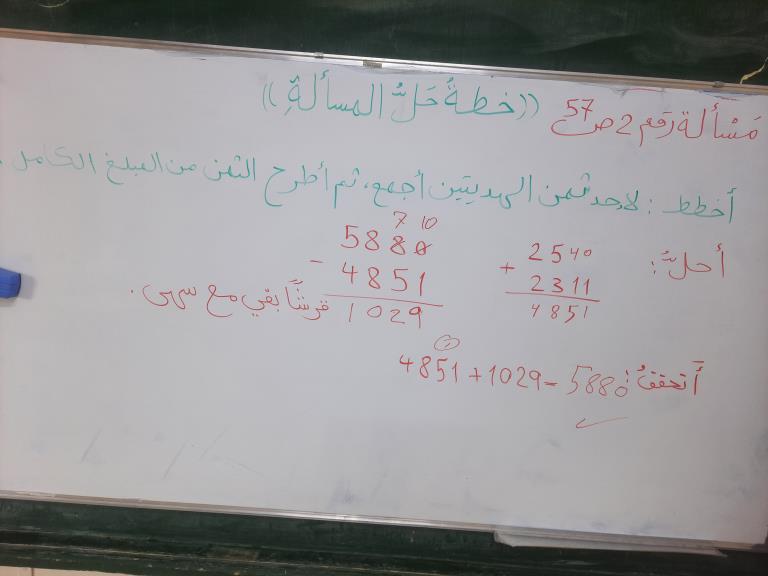 مَسْألة رَقم 2 ص 57 ((خطةُ حَلُّ المسألةِ))
أخطط: لاجد ثمن الهديتين أجمع، ثم أطرح الثمن من المبلغ الكامل.
أحلُّ:
2540
+
2311
4851
7 10
5880
-
4851
1029 قرشًا بقي مع سهى.
أتحققُ: 4851 + 1029 = 5880 ✓